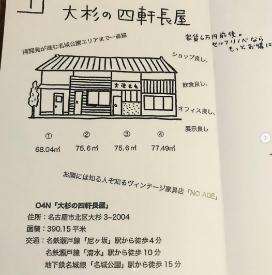 大杉の四軒長屋
再開発が進む名城公園エリアまで一直線
家賃6万円前後。
セルフリノベなら
もっとお得に
ショップ良し、
飲食良し、
オフィス良し、
展示良し
① ② ③ ④
68.04㎡ 75.6㎡ 75.6㎡ 77.49㎡
お隣には知る人ぞ知るヴィンテージ家具店「NO AGE」
O4N「大杉の四軒長屋」
住所：名古屋市北区大杉 3-2004
面積：390.15 平米
交通：名鉄瀬戸線「尼ヶ坂」駅から徒歩4分
名鉄瀬戸線「清水」駅から徒歩10分
地下鉄名城線「名城公園」駅から徒歩15分